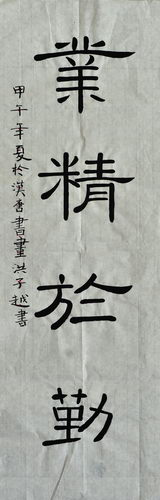 業精於勤
甲午年夏於漢唐書畫洪子越書